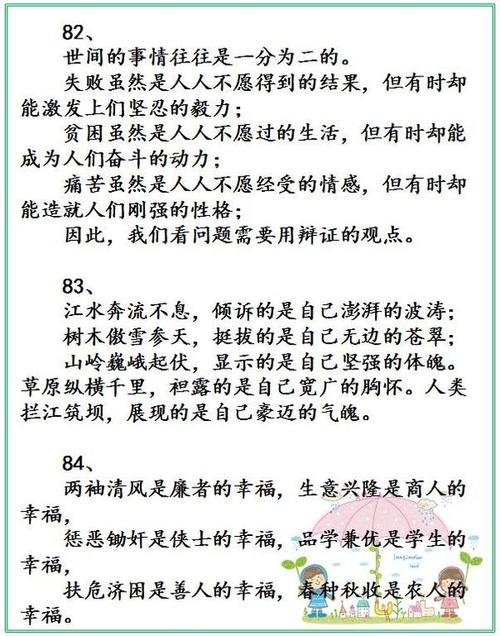 82、
世间的事情往往是一分为二的。
失败虽然是人人不愿得到的结果，但有时却
能激发上们坚忍的毅力；
贫困虽然是人人不愿过的生活，但有时却能
成为人们奋斗的动力；
痛苦虽然是人人不愿经受的情感，但有时却
能造就人们刚强的性格；
因此，我们看问题需要用辩证的观点。
83、
江水奔流不息，倾诉的是自己澎湃的波涛；
树木傲雪参天，挺拔的是自己无边的苍翠；
山岭巍峨起伏，显示的是自己坚强的体魄。
草原纵横千里，袒露的是自己宽广的胸怀。人类
拦江筑坝，展现的是自己豪迈的气魄。
84、
两袖清风是廉者的幸福，生意兴隆是商人的
幸福，
惩恶锄奸是侠士的幸福，品学兼优是学生的
幸福，
Imagination
land
扶危济困是善人的幸福，春种秋收是农人的
幸福。